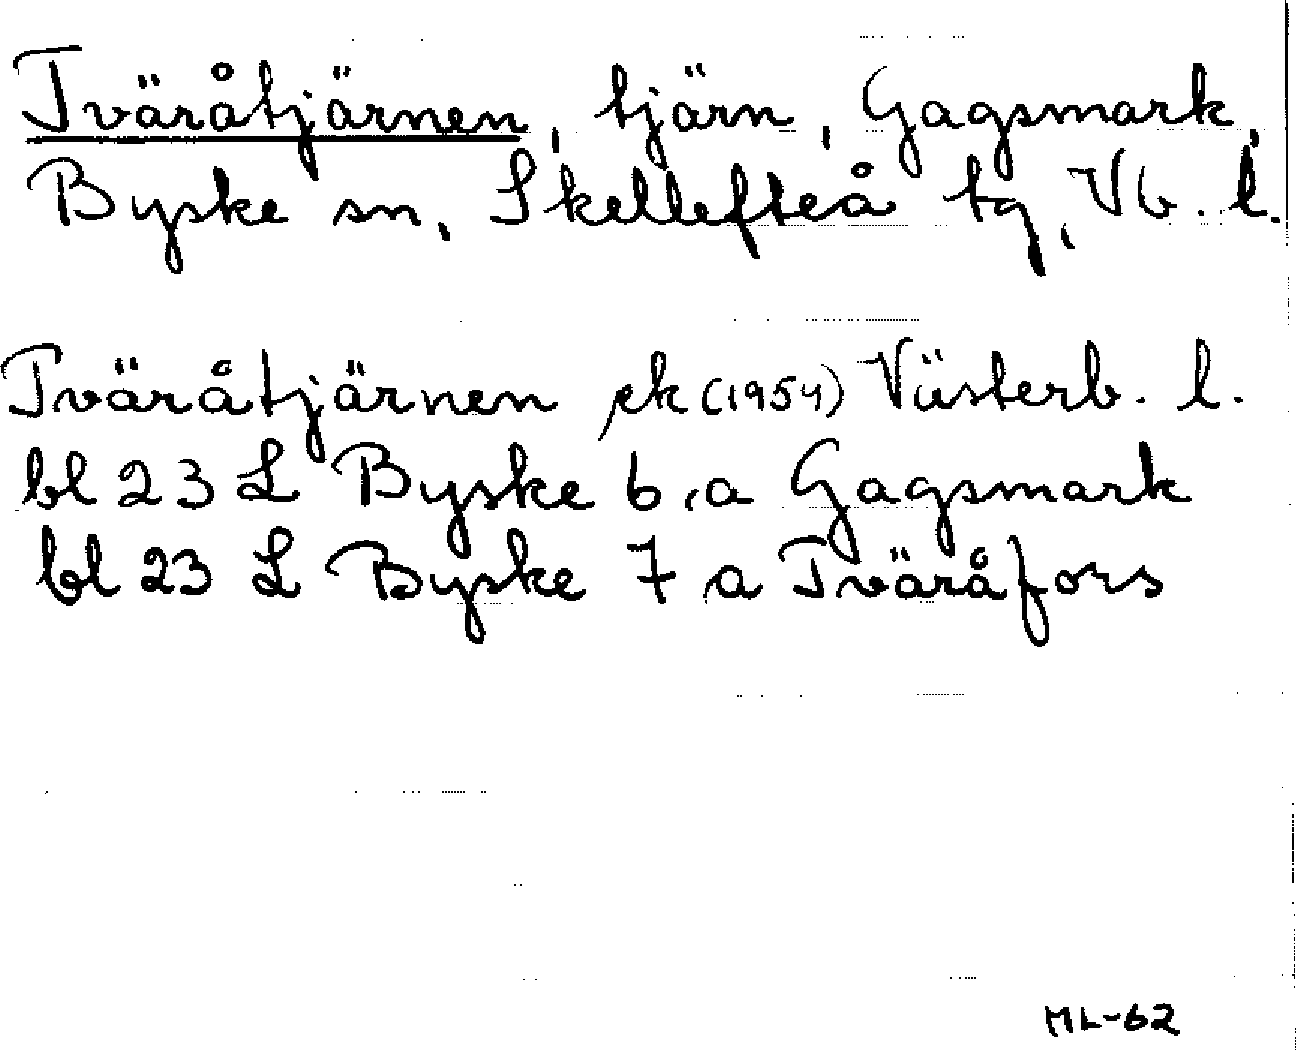 Tväråtjärnen, tjärn, Gagsmark,
Byske sn, Skellefteå tg, Vb. l.
Tväråtjärnen ek (1954) Västerb. l.
bl 23 L Byske 6, a Gagsmark
bl 23 L Byske 7 a Tväråfors
ML-62